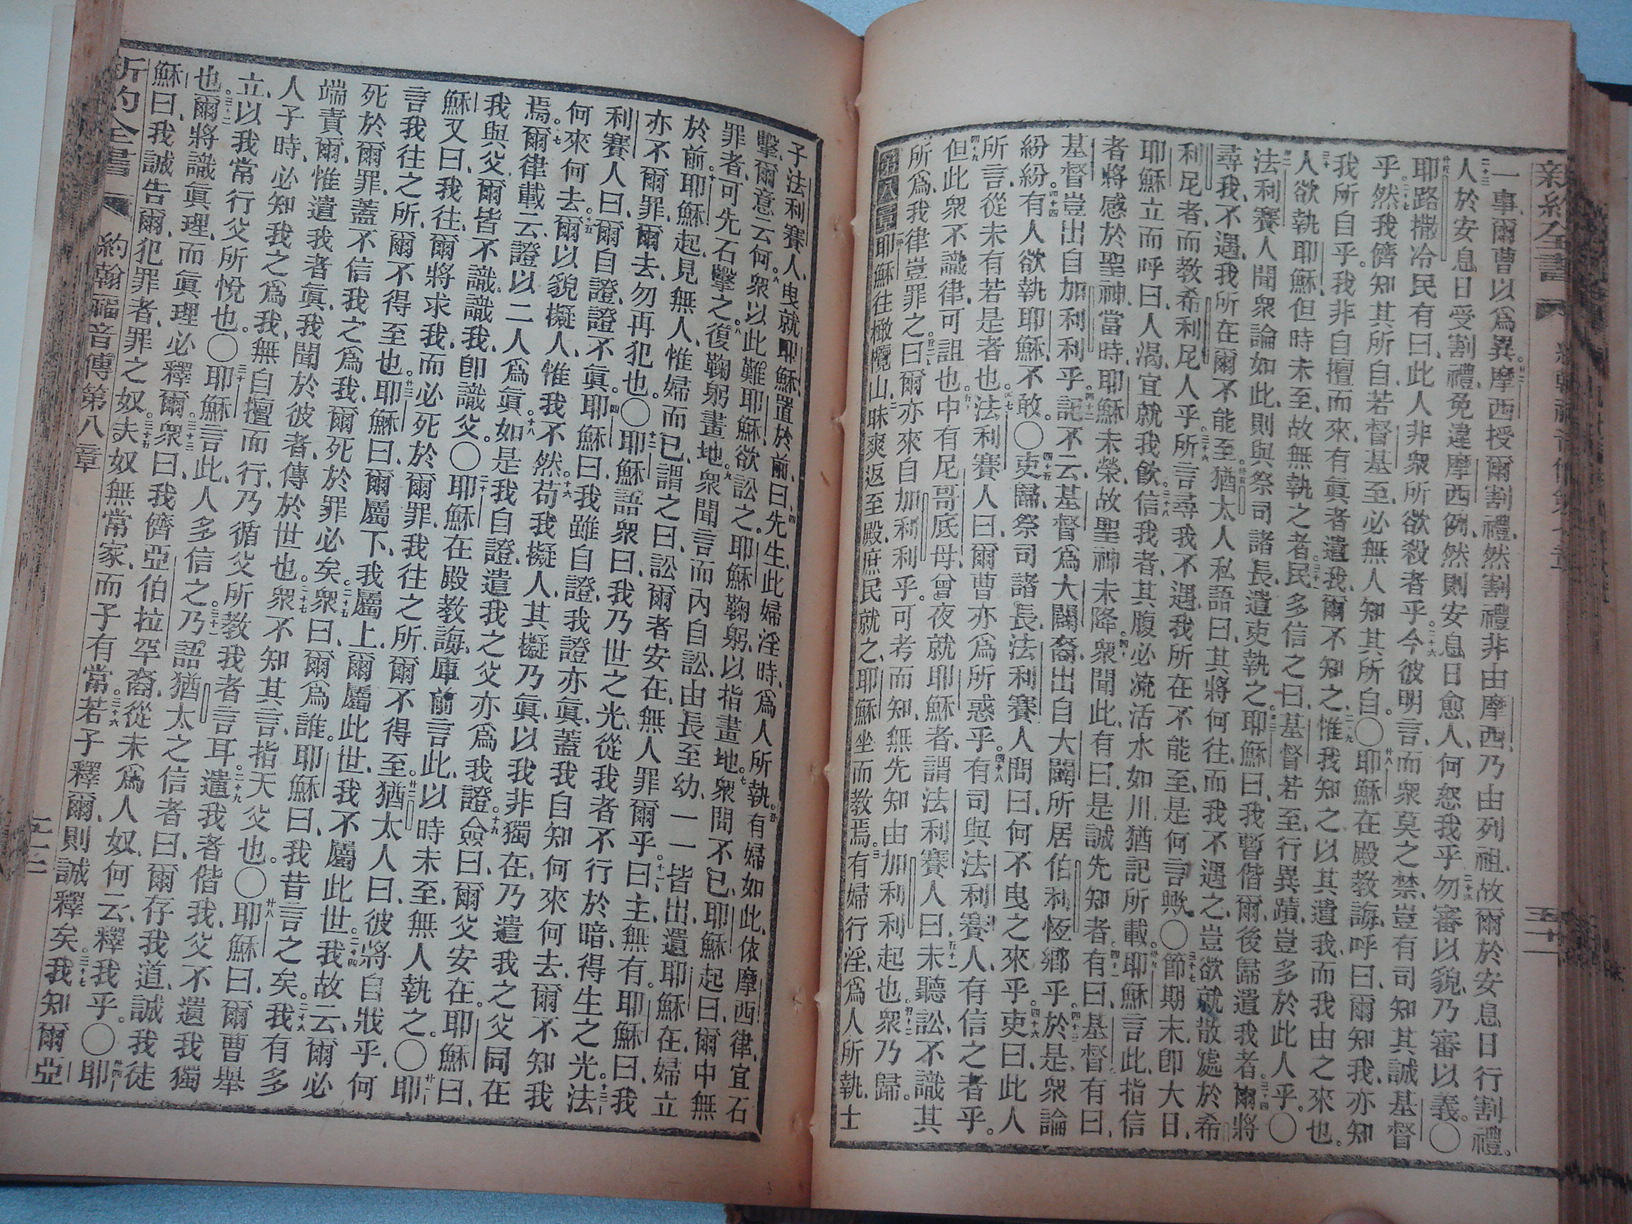 新約全書
約翰福音傳第七章
五十一
一事爾曹以爲異摩西授爾割禮然割禮非由摩西乃由列祖故爾於安息日行割禮
人於安息日受割禮免違摩西例然則安息日愈人何恕我乎勿審以貌乃審以義〇
耶路撒冷民有曰此人非衆所欲殺者乎今彼明言而衆莫之禁豈有司知其誠基督
乎然我儕知其所自若基督至必無人知其所自〇耶穌在殿教誨呼曰爾知我亦知
我所自乎我非自擅而來有眞者遣我爾不知之惟我知之以其遣我而我由之來也
人欲執耶穌但時未至故無執之者民多信之曰基督若至行異蹟豈多於此人乎〇
法利賽人聞衆論如此則與祭司諸長遣吏執之耶穌曰我暫偕爾後歸遣我者爾將
尋我不遇我所在爾不能至猶太人私語曰其將何往而我不遇之豈欲就散處於希
利尼者而教希利尼人乎所言尋我不遇我所在不能至是何言歟〇節期末卽大日
耶穌立而呼曰人渴宜就我飲信我者其腹必流活水如川猶記所載耶穌言此指信
者將感於聖神當時耶穌未榮故聖神未降衆聞此有曰是誠先知者有曰基督有曰
基督豈出自加利利乎記不云基督爲大闢裔出自大闢所居伯利恆鄉乎於是衆論
紛紛有人欲執耶穌不敢〇吏歸祭司諸長法利賽人問曰何不曳之來乎吏曰此人
所言從未有若是者也法利賽人曰爾曹亦爲所惑乎有司與法利賽人有信之者乎
但此衆不識律可詛也中有尼哥底母曾夜就耶穌者謂法利賽人曰未聽訟不識其
所爲我律豈罪之曰爾亦來自加利利乎可考而知無先知由加利利起也衆乃歸
第八章耶穌往橄欖山昧爽返至殿庶民就之耶穌坐而教焉有婦行淫爲人所執士
子法利賽人曳就耶穌置於前曰先生此婦淫時爲人所執有婦如此依摩西律宜石
擊爾意云何衆以此難耶穌欲訟之耶穌鞠躬以指畫地衆問不已耶穌起曰爾中無
罪者可先石擊之復鞠躬畫地衆聞言而內自訟由長至幼一一皆出遺耶穌在婦立
於前耶穌起見無人惟婦而已謂之曰訟爾者安在無人罪爾乎曰主無有耶穌曰我
亦不爾罪爾去勿再犯也〇耶穌語衆曰我乃世之光從我者不行於暗得生之光法
利賽人曰爾自證證不眞耶穌曰我雖自證我證亦眞蓋我自知何來何去爾不知我
何來何去爾以貌擬人惟我不然苟我擬人其擬乃眞以我非獨在乃遣我之父同在
焉爾律載云證以二人爲眞如是我自證遣我之父亦爲我證僉曰爾父安在耶穌曰
我與父爾皆不識識我卽識父〇耶穌在殿教誨庫前言此以時未至無人執之〇耶
穌又曰我往爾將求我而必死於爾罪我往之所爾不得至猶太人曰彼將自戕乎何
言我往之所爾不得至也耶穌曰爾屬下我屬上爾屬此世我不屬此世我故云爾必
死於爾罪蓋不信我之爲我爾死於罪必矣衆曰爾爲誰耶穌曰我昔言之矣我有多
端責爾惟遣我者眞我聞於彼者傳於世也衆不知其言指天父也〇耶穌曰爾曹舉
人子時必知我之爲我無自擅而行乃循父所教我者言耳遣我者偕我父不遺我獨
立以我常行父所悅也〇耶穌言此人多信之乃語猶太之信者曰爾存我道誠我徒
也爾將識眞理而眞理必釋爾衆曰我儕亞伯拉罕裔從未爲人奴何云釋我乎〇耶
穌曰我誠告爾犯罪者罪之奴夫奴無常家而子有常若子釋爾則誠釋矣我知爾亞
新約全書
約翰福音傳第八章
五十二